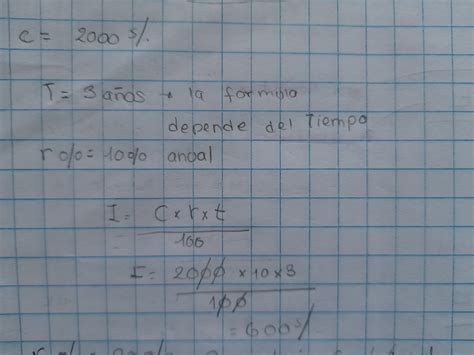 C = 2000 S/.
T = 3 años → la formula
depende del Tiempo
r % = 10% anual
I = C x r x t
100
I = 2000 x 10 x 3
100
= 600 S/